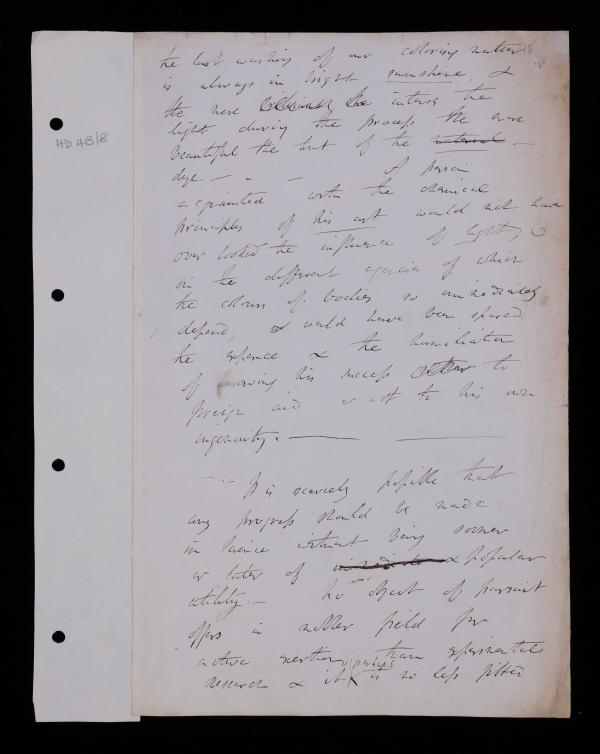 HD 4B/8
the last washing of our coloring matter
is always in bright sunshine, &
the more intense the
light during the process the more
beautiful the tint of the material
dye. — A person
acquainted with the chemical
principles of his art would not have
over looked the influence of light,
in the different agencies of which
the colours of bodies so immediately
depend, & would have been spared
the expence & the humiliation
of owing his success to
foreign aid & not to his own
ingenuity. —
It is scarcely possible that
any progress should be made
in science without being sooner
or later of & popular
utility. — No object of pursuit
offers a nobler field for
active exertion than experimental
perhaps
research & it is no less fitted